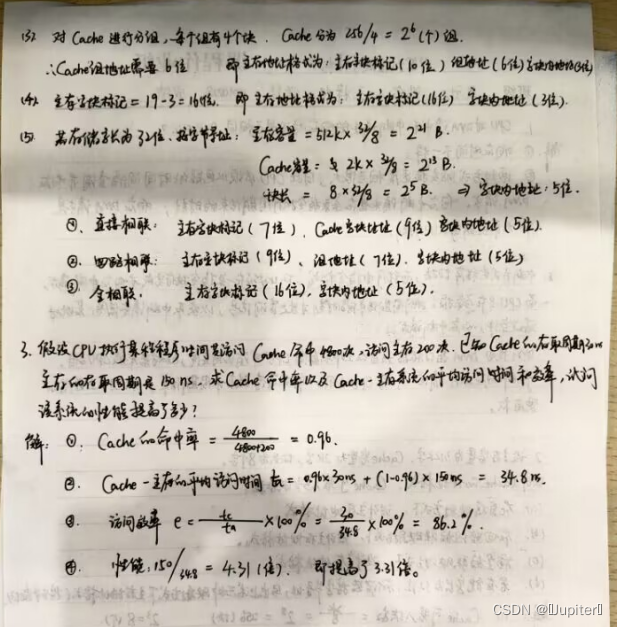 (3). 对 Cache 进行分组,一个组有4个块. Cache 分为 256/4 = 2⁶(个)组.
∴Cache组地址需要 6位 即主存地址格式为: 主存字块标记(10位) 组地址(6位) 字块内地址(3位)
(4). 主存字块标记 = 19-3 = 16位. 即主存地址格式为: 主存字块标记(16位) 字块内地址(3位).
(5). 若存储字长为32位、按字节寻址: 主存容量 = 512K × 32/8 = 2²¹ B.
Cache容量: 2K × 32/8 = 2¹³ B.
块长 = 8 × 32/8 = 2⁵ B. ⇒ 字块内地址: 5位.
①. 直接相联: 主存字块标记(7位)、Cache字块地址(9位) 字块内地址(5位).
②. 四路相联: 主存字块标记(9位)、组地址(7位). 字块内地址(5位)
③. 全相联. 主存字块标记(16位). 字块内地址(5位).
3. 假设CPU执行某段程序时间共访问 Cache 命中 4800次, 访问主存 200次. 已知 Cache的存取周期30ns
主存的存取周期是 150 ns. 求Cache 命中率以及 Cache-主存系统的平均访问时间和效率, 试问
该系统的性能提高了多少?
解: ①. Cache的命中率 = 4800/4800+200 = 0.96.
②. Cache-主存的平均访问时间 ta = 0.96×30ns + (1-0.96)×150ns = 34.8 ns.
③. 访问效率 e = tc/ta ×100% = 30/34.8 ×100% = 86.2%.
④. 性能: 150/34.8 = 4.31(倍). 即提高了 3.31倍。
CSDN @Jupiter